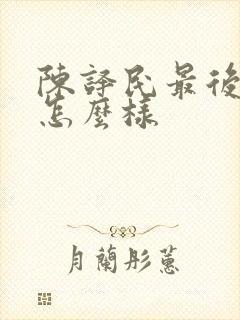 陳譯民最後
怎麼樣
月蘭彤蕙